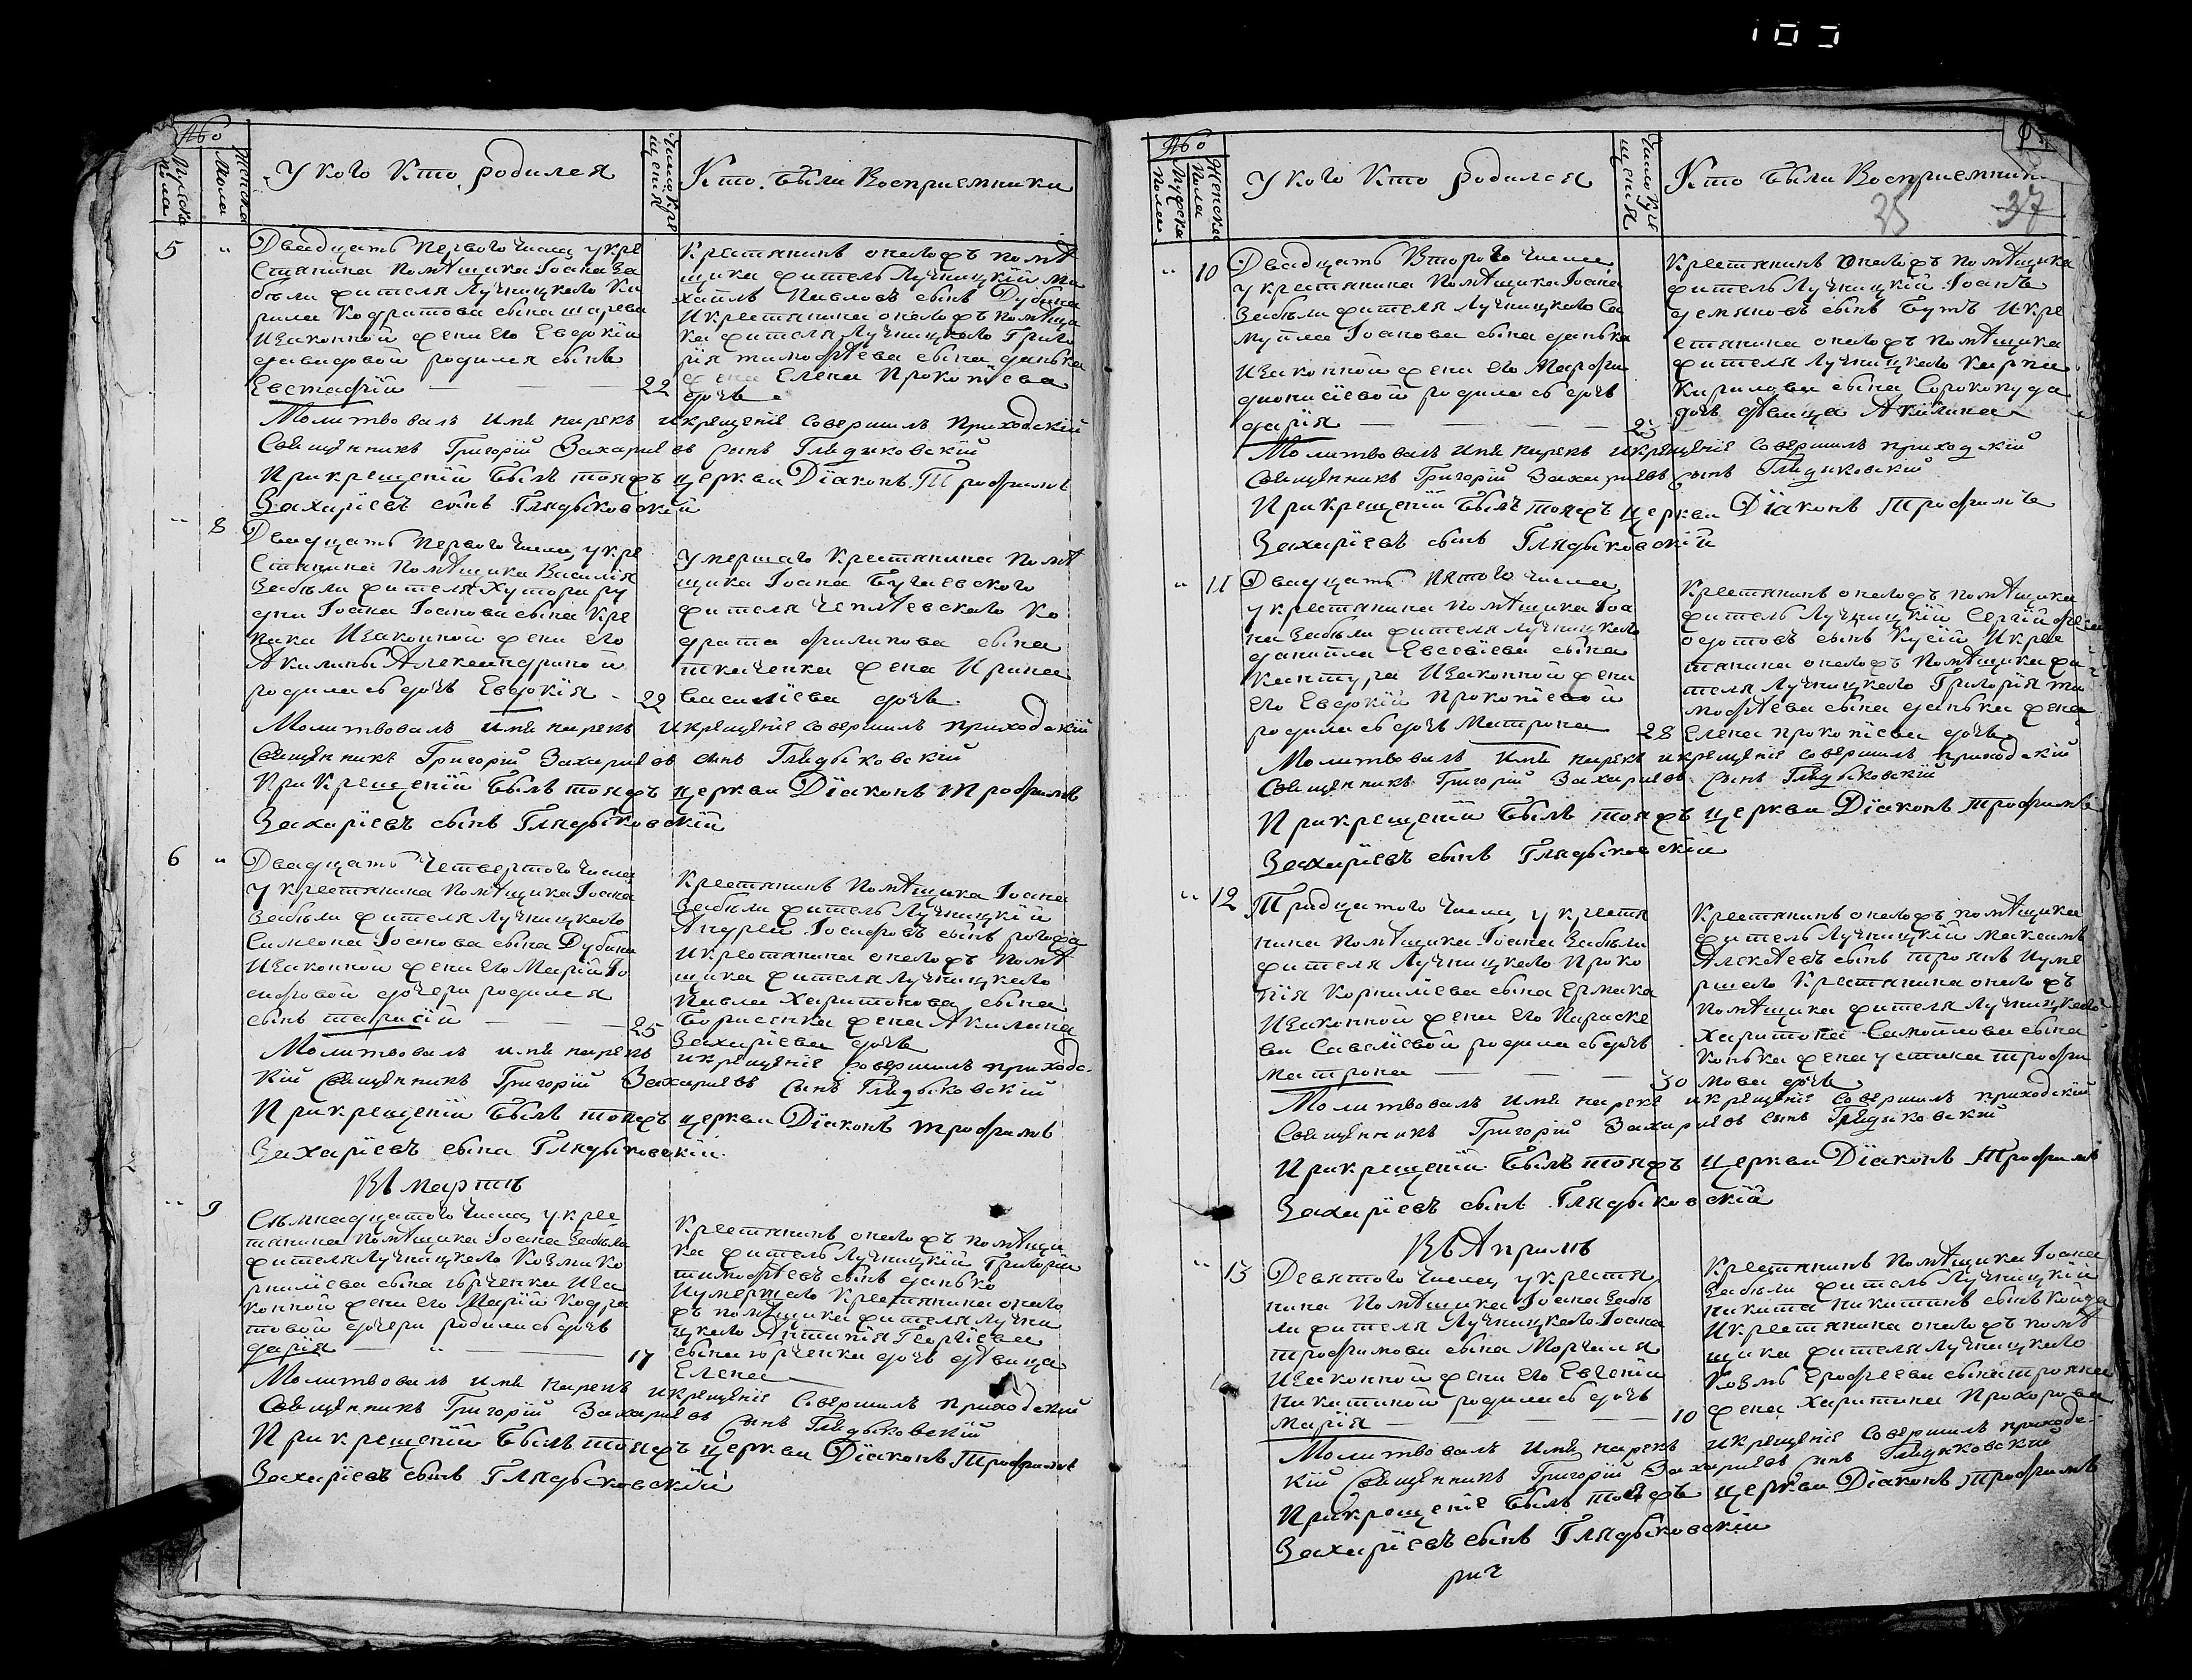 103
№о
Мужска пола
Женска пола
У кого кто родился
Число кре щения
Кто были Восприемники
5
Двадцать первого числа, у кре
стянина помѣщика Іоана За
бѣли жителя Лучницкаго Ки
рила Кодратова сына
изаконной жени его Евдокіи
давидовой родился сынъ
Евстафій
22
Крестянинъ онагожъ помѣ
щика житель Лучницкій Ми
хаилъ Павловъ сынъ Дубина
Икрестянина онагожъ помѣщи
ка жителя Лучницкаго Григо
рія тимофѣева сына данька
жена Елена Прокопіева
дочь
Молитвовалъ имя нарекъ икрещеніе совершилъ приходскій
Священникъ Григорій Захаріевъ сынъ Глядыковскій
Прикрещеніи былъ тояжъ церкви Діаконъ Трофимъ
Захаріевъ сынъ Глядыковскій
8
Двадцать первого числа, у кре
стянина помѣщика Василія
Забѣли жителя Хутора ру
дни Іоана Іоанова сына Кре
пака Изаконной жени его
Акилины Александриной
родилась дочь Евдокія
22
Умершаго крестянина помѣ
щика Іоана Бугаевского
жителя Чеплѣевскаго Ко
драта филипова сына
ткаченка жена Ирина
василіева дочь
Молитвовалъ имя нарекъ икрещеніе совершилъ приходскій
Священникъ Григорій Захаріевъ сынъ Глядыковскій
Прикрещеніи былъ тояжъ церкви Діаконъ Трофимъ
Захаріевъ сынъ Глядыковскій
6
Двадцать Четвертого числа
у крестянина помѣщика Іоана
Забѣли жителя Лучницкаго
Симеона Іоанова сына Дубини
Изаконной жени его Маріи Іо
сифовой дочери родился
сынъ тарасій
25
Крестянинъ помѣщика Іоана
Забѣли житель Лучницкій
Андрей Іосифовъ сынъ рогожа
Икрестянина онагожъ помѣ
щика жителя Лучницкаго
Павла Харитонова сына
Борисенка жена Акилина
Захаріева дочь
Молитвовалъ имя нарекъ икрещеніе совершилъ приходс-
кій Священникъ Григорій Захаріевъ сынъ Глядыковскій
Прикрещеніи былъ тояжъ церкви Діаконъ Трофимъ
Захаріевъ сына Глядыковскій
Въ Мартѣ
9
Сѣмнадцатого числа, у крес
тянина помѣщика Іоана Забѣли
жителя Лучницкаго Козми Ко
рниліева сына юрченка Иза
конной жени его Маріи Кодра
товой дочери родилась дочь
дарія
17
Крестянинъ онагожъ помѣщи
ка житель Лучницкій Григорій
тимофѣевъ сынъ данько
Иумершаго Крестянина онаго
жъ помѣщика жителя Лучни
цкаго Антипія Георгіева
сына юрченка дочь дѣвица
Елена
Молитвовалъ имя нарекъ икрещеніе совершилъ приходскій
Священникъ Григорій Захаріевъ сынъ Глядыковскій
Прикрещеніи былъ тояжъ церкви Діаконъ Трофимъ
Захаріевъ сынъ Глядыковскій
№о
Мужска пола
Женска пола
У кого кто родился
Число кре щения
Кто были Восприемник
25 37
10
Двадцать Второго числа
у крестянина помѣщика Іоана
Забѣли жителя Лучницкаго Са
муйла Іоанова сына данька
Изаконной жени его Марфи
дионисіевой родилась дочь
дарія
23
Крестянинъ онагожъ помѣщика
житель Лучницкій Іоанъ
демяновъ сынъ Бутъ Икре
стянина онагожъ помѣщика
жителя Лучницкаго Карпа
Кирилова сына Сорокопуда
дочь дѣвица Акилина
Молитвовалъ имя нарекъ икрещеніе совершилъ приходскій
Священникъ Григорій Захаріевъ сынъ Глядыковскій
Прикрещеніи былъ тояжъ церкви Діаконъ Трофимъ
Захаріевъ сынъ Глядыковскій
11
Двадцать пятого числа
у крестянина помѣщика Іоа
на Забѣли жителя лучницкаго
даниила Евсевіева сына
кантура Изаконной жени
его Евдокіи Прокопіевой
родилась дочь Матрона
28
Крестянинъ онагожъ помѣщика
житель Лучницкій Сергій
едотовъ сынъ Кусій Икрес
тянина онагожъ помѣщика жи
теля Лучницкаго Григорія ти
мофѣева сына данька жена
Елена прокопіева дочь
Молитвовалъ имя нарекъ икрещеніе совершилъ приходскій
Священникъ Григорій Захаріевъ сынъ Глядыковскій
Прикрещеніи былъ тояжъ церкви Діаконъ Трофимъ
Захаріевъ сынъ Глядыковскій
12
Тридцатого числа, у крестя
нина помѣщика Іоана Забѣли
жителя Лучницкаго Проко
пія Корниліева сына Ермака
Изаконной жени его Параске
ви Савеліевой родилась дочь
Матрона
30
Крестянинъ онагожъ помѣщика
житель Лучницкій максимъ
Алексѣевъ сынъ троянъ Иуме
ршаго Крестянина онагожъ
помѣщика жителя Лучницкаго
Харитона Самойлова сына
конька жена устина трофи
мова дочь
Молитвовалъ имя нарекъ икрещеніе совершилъ приходскій
Священникъ Григорій Захаріевъ сынъ Глядыковскій
Прикрещеніи былъ тояжъ церкви Діаконъ Трофимъ
Захаріевъ сынъ Глядыковскій
Въ Априлѣ
13
Девятого числа, у крестя
нина помѣщика Іоана Забѣ
ли жителя Лучницкаго Іоана
трофимова сына
Изаконной жени его Евгеніи
Никитиной родилась дочь
Марія
10
Крестянинъ помѣщика Іоана
Забѣли житель Лучницкій
никита никитинъ сынъ
Икрестянина онагожъ помѣ
щика жителя Лучницкаго
Козмы Ерофѣева сына трояна
жена Харитина Прохорова
Молитвовалъ имя нарекъ икрещеніе совершилъ приходс-
кій Священникъ Григорій Захаріевъ сынъ Глядыковскій
Прикрещеніе былъ тояжъ церкви Діаконъ Трофимъ
Захаріевъ сынъ Глядыковскій